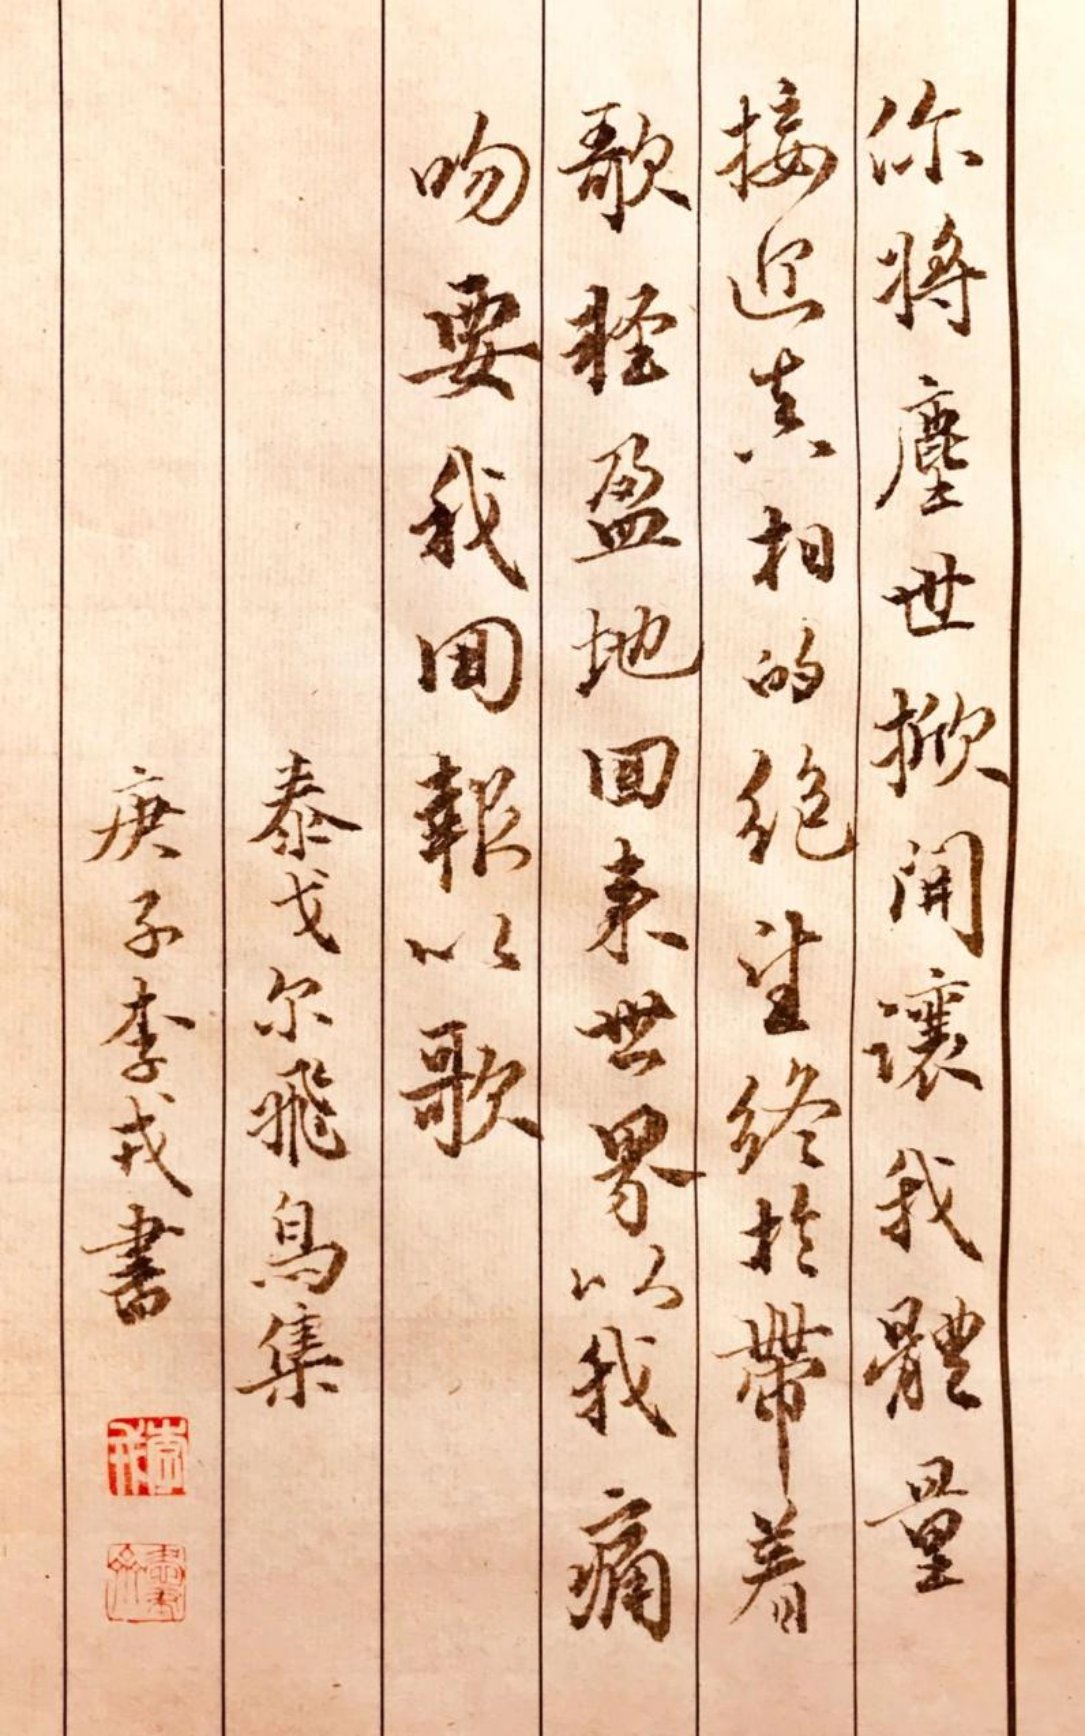 你將塵世掀開讓我體量
接近真相的絕望終於帶着
歌輕盈地回来世界以我痛
吻要我回報以歌
泰戈尔飛鳥集
庚子李戎書